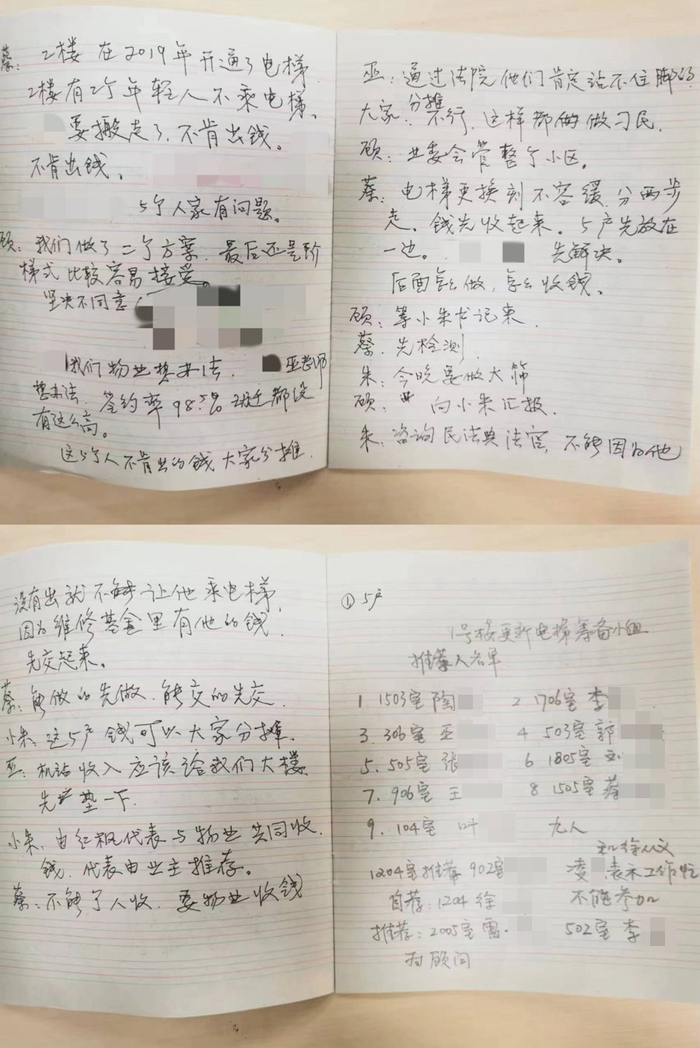 蔡：2楼在2019年开通了电梯
2楼有2个年轻人不乘电梯。
要搬走了，不肯出钱。
不肯出钱。
5个人家有问题。
顾：我们做了二个方案，最后还是阶
梯式比较容易接受。
坚决不同意
我们物业想办法，巫老师
想办法，签约率98.5%，动迁都没
有这么高。
这5个人不肯出的钱，大家分摊。
巫：通过法院他们肯定站不住脚的
大家分摊不行，这样都做刁民。
顾：业委会管整个小区。
蔡：电梯更换刻不容缓，分两步
走。钱先收起来。5户先放在
一边。先解决。
后面怎么做，怎么收钱。
顾：等小朱书记来。
蔡：先检测
朱：今晚要做大筛
顾：向小朱汇报。
朱：咨询民法典法官，不能因为他
没有出就不能让他乘电梯，
因为维修基金里有他的钱，
先交起来。
蔡：能做的先做，能交的先交
小朱：这5户钱可以大家分摊。
巫：机站收入应该给我们大楼
先垫一下。
小朱：由红枫代表与物业共同收
钱，代表由业主推荐。
蔡：不能个人收，要物业收钱
①5户
1号楼更新电梯筹备小组
推荐人名单
1 1503室 陶
2 1706室 李
3. 306室 巫
4 503室 郭
5. 505室 张
6 1805室 刘
7. 906室 王
8 1505室 蔡
9. 104室 叶
九人
1204室推荐 902室
凌 表示工作忙
自荐：1204 徐
不能参加
推荐：2005室 雷
502室 李
为顾问